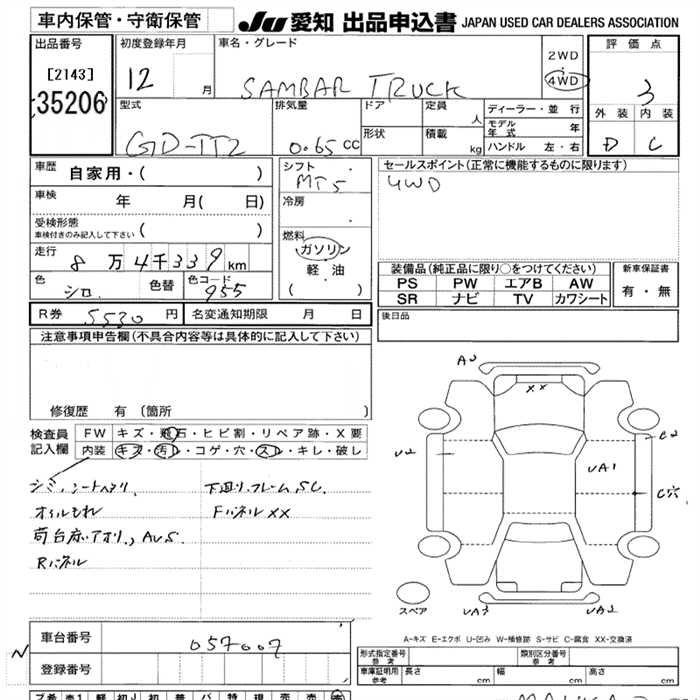 車内保管・守衛保管 JU 愛知 出品申込書 JAPAN USED CAR DEALERS ASSOCIATION
出品番号 初度登録年月 車名・グレード 2WD 評価点
[2143] 12 月 SAMBAR TRUCK 4WD 3
35206 型式 排気量 ドア 定員 人 ディーラー・並行 外装 内装
GD-TT2 0.65 CC 形状 積載 kg モデル年式 年 D C
ハンドル 左・右
車歴 自家用・( ) シフト セールスポイント(正常に機能するものに限ります)
車検 年 月( 日) MT5 4WD
受検形態 冷房
車検付きのみ記入して下さい ( )
走行 8万4千339km 燃料 ガソリン
軽油
( )
装備品(純正品に限り○をつけてください) 新車保証書
色 シロ 色替 色コード 955 PS PW エアB AW 有・無
SR ナビ TV カワシート
R券 5530 円 名変通知期限 月 日 後日品
注意事項申告欄(不具合内容等は具体的に記入して下さい)
修復歴 有 (箇所 )
A3
XX
検査員 FW キズ・飛石・ヒビ割・リペア跡・X要
記入欄 内装 キズ・汚レ・コゲ・穴・スレ・キレ・破レ
C2
U2
UA1
C穴
シミ、シートヘタリ 下廻り、フレームSC
オイルもれ FパネルXX
荷台床、アオリ、AUS
Rパネル
スペア UA3 UA2
A-キズ E-エクボ U-凹み W-補修跡 S-サビ C-腐食 XX-交換済
車台番号 057007
登録番号
形式指定番号 参考 類別区分番号 参考
車庫証明用 参考 長さ cm 幅 cm 高さ cm